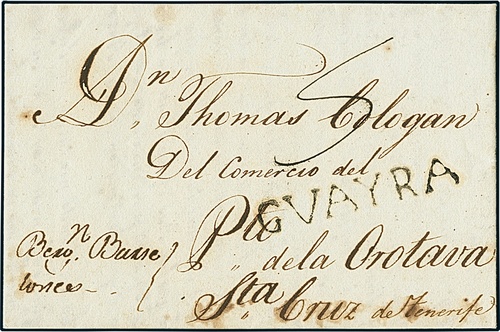 Dn, Thomas Cologan
Del Comercio del
GUAYRA
Pto
dela Orotava
Sta Cruz de Tenerife
Bern Barse
lones